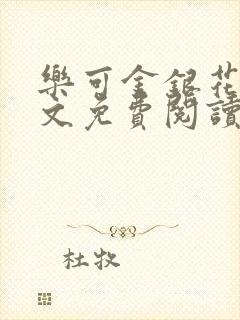 樂可金銀花
文免費閱讀
杜牧